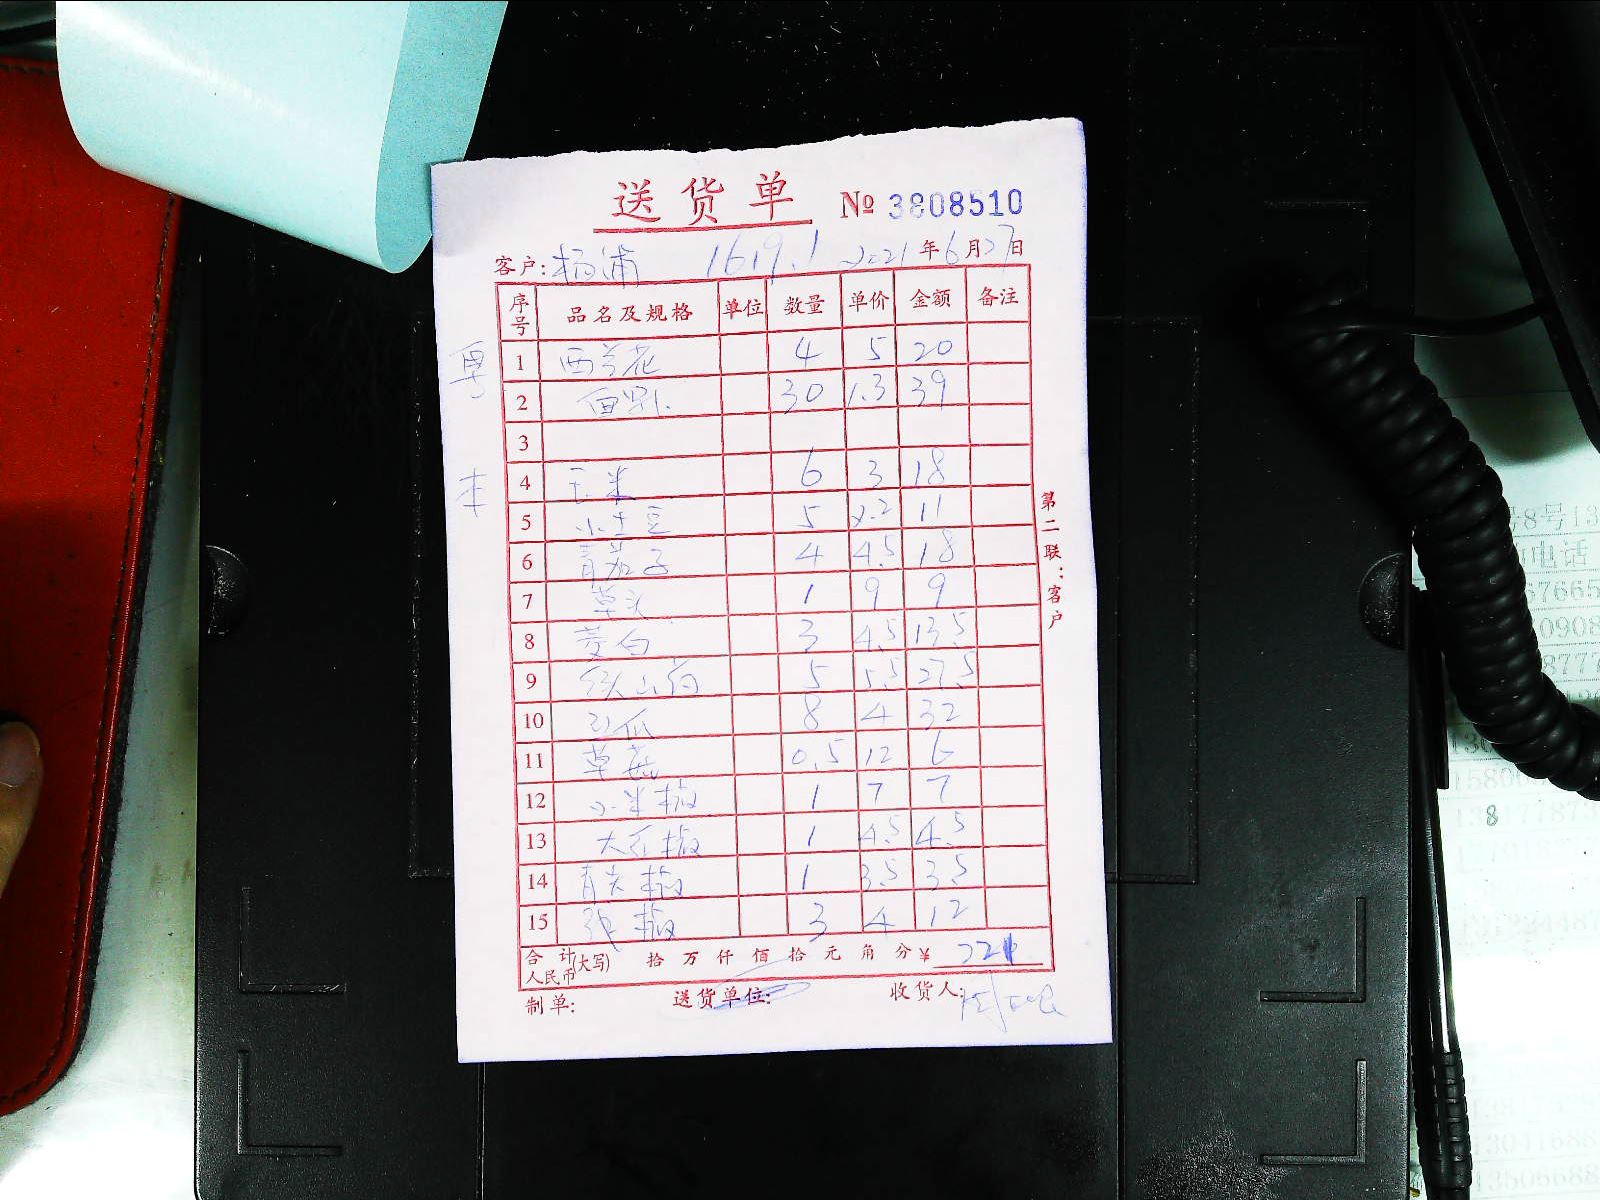 送货单 № 3808510
客户: 杨浦 1619.1 2021年6月27日
序号 品名及规格 单位 数量 单价 金额 备注
1 西兰花 4 5 20
2 30 1.3 39
3
4 玉米 6 3 18
5 小土豆 5 2.2 11
6 青茄子 4 4.5 18
7 草头 1 9 9
8 茭白 3 4.5 13.5
9 铁山药 5 5.5 27.5
10 瓜 8 4 32
11 草菇 0.5 12 6
12 小米椒 1 7 7
13 大红椒 1 4.5 4.5
14 青尖椒 1 3.5 3.5
15 椒 3 4 12
合计人民币(大写) 拾 万 仟 佰 拾 元 角 分 ¥ 221
制单: 送货单位: 收货人:
第二联:客户
本
电话